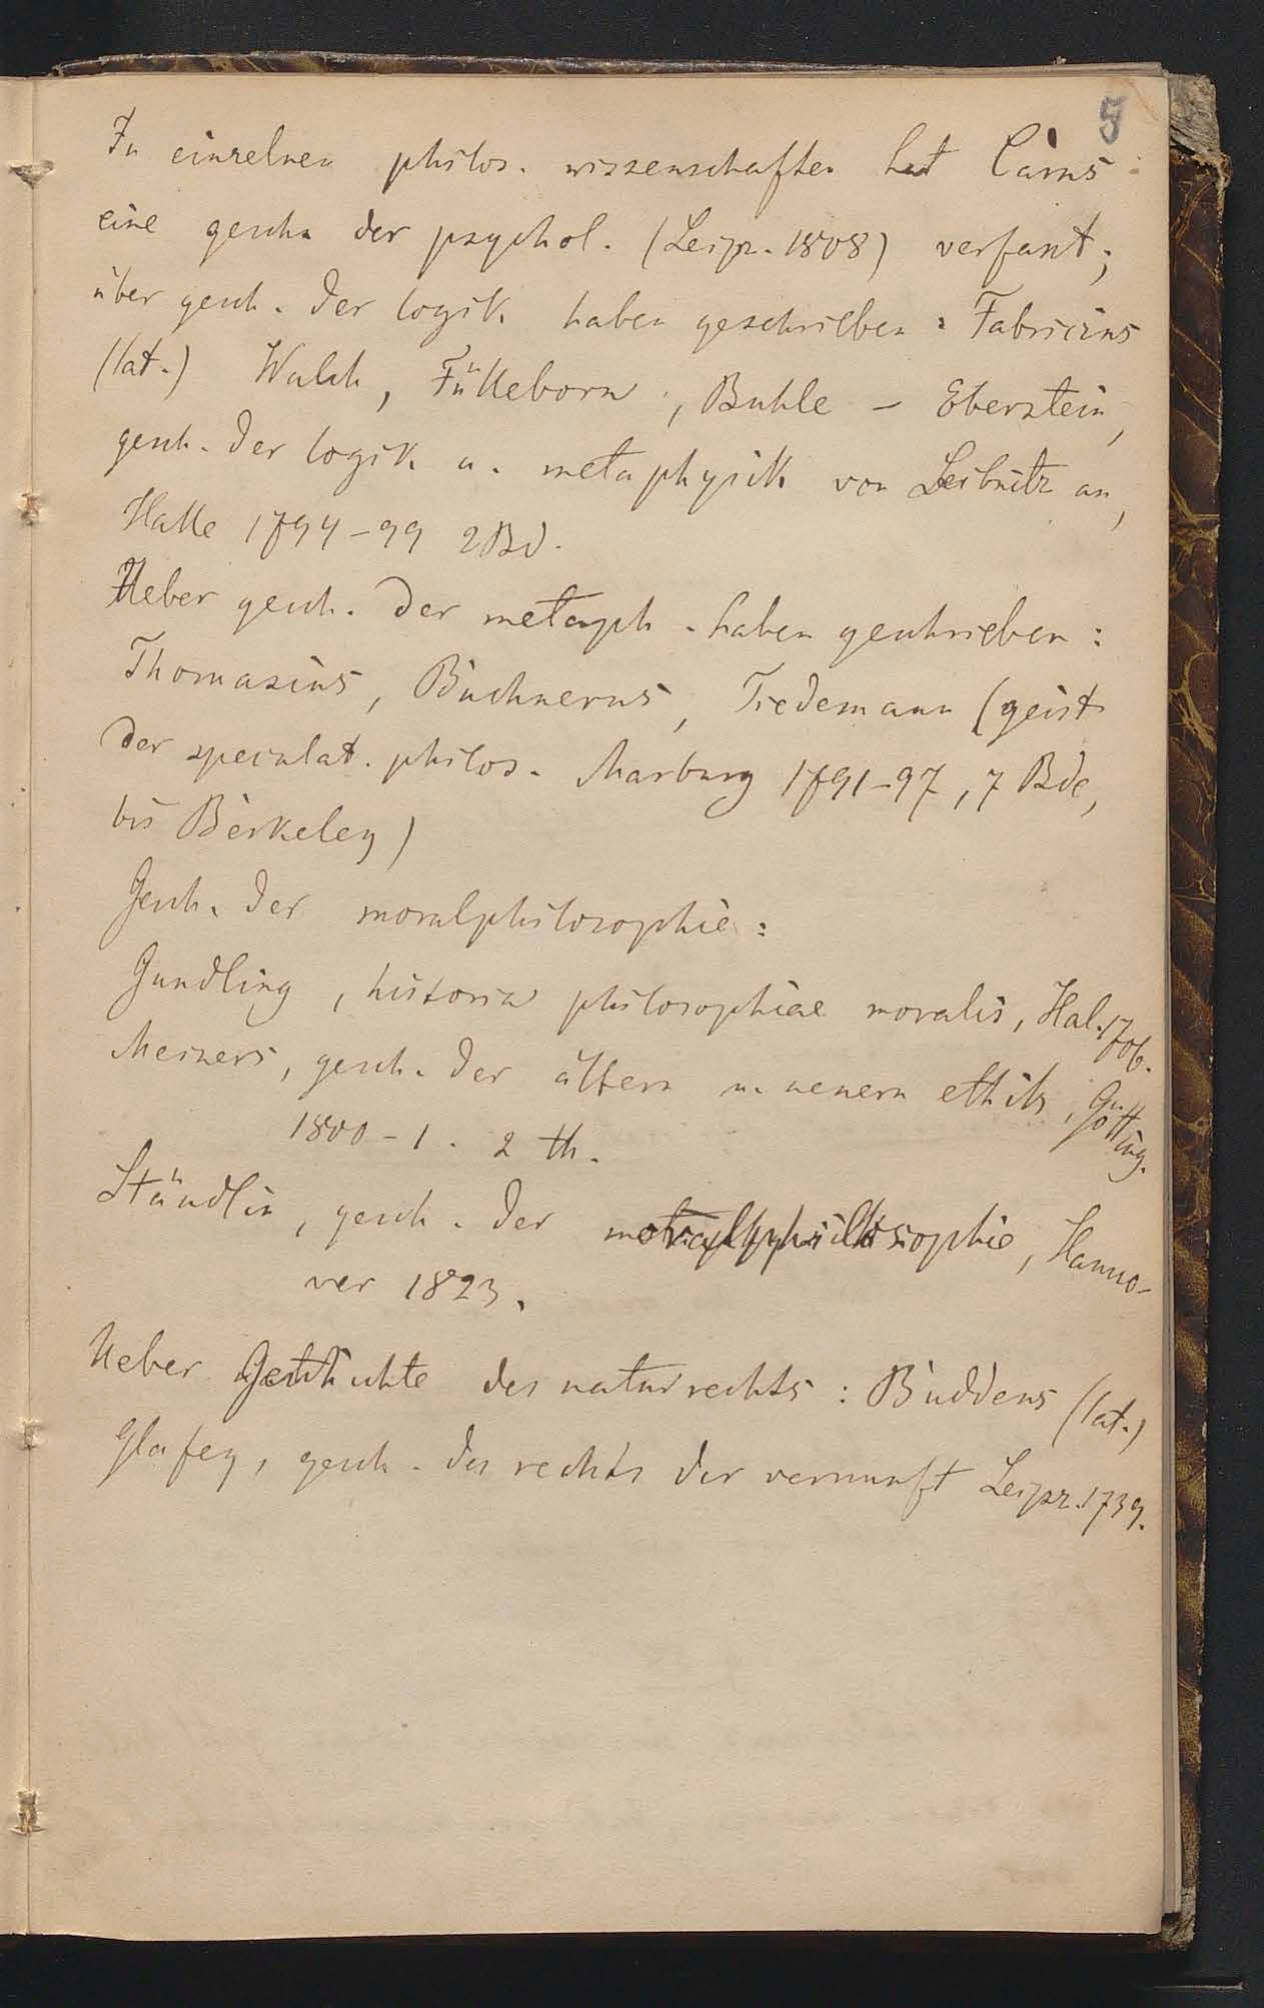 5
In einzelnen philos. wissenschaften hat Carus
eine gesch. der psychol. (Leipz. 1808) verfasst;
über gesch. der logik haben geschrieben: Fabricius
(lat.) Walch, Fülleborn, Buhle – Eberstein,
gesch. der logik u. metaphysik von Leibnitz an,
Halle 1794–99 2 Bd.
Ueber gesch. der metaph. haben geschrieben:
Thomasius, Buchnerus, Tiedemann (geist
der speculat. philos. Marburg 1791–97, 7 Bde,
bis Berkeley)
Gesch. der moralphilosophie:
Gundling, historia philosophiae moralis, Hal. 1706.
Meiners, gesch. der ältern u. neuern ethik, Götting.
1800–1. 2 th.
Stäudlin, gesch. der moralphilosophie, Hanno-
ver 1823.
Ueber Geschichte des naturrechts: Buddeus (lat.)
Glafey, gesch. des rechts der vernunft Leipz. 1739.